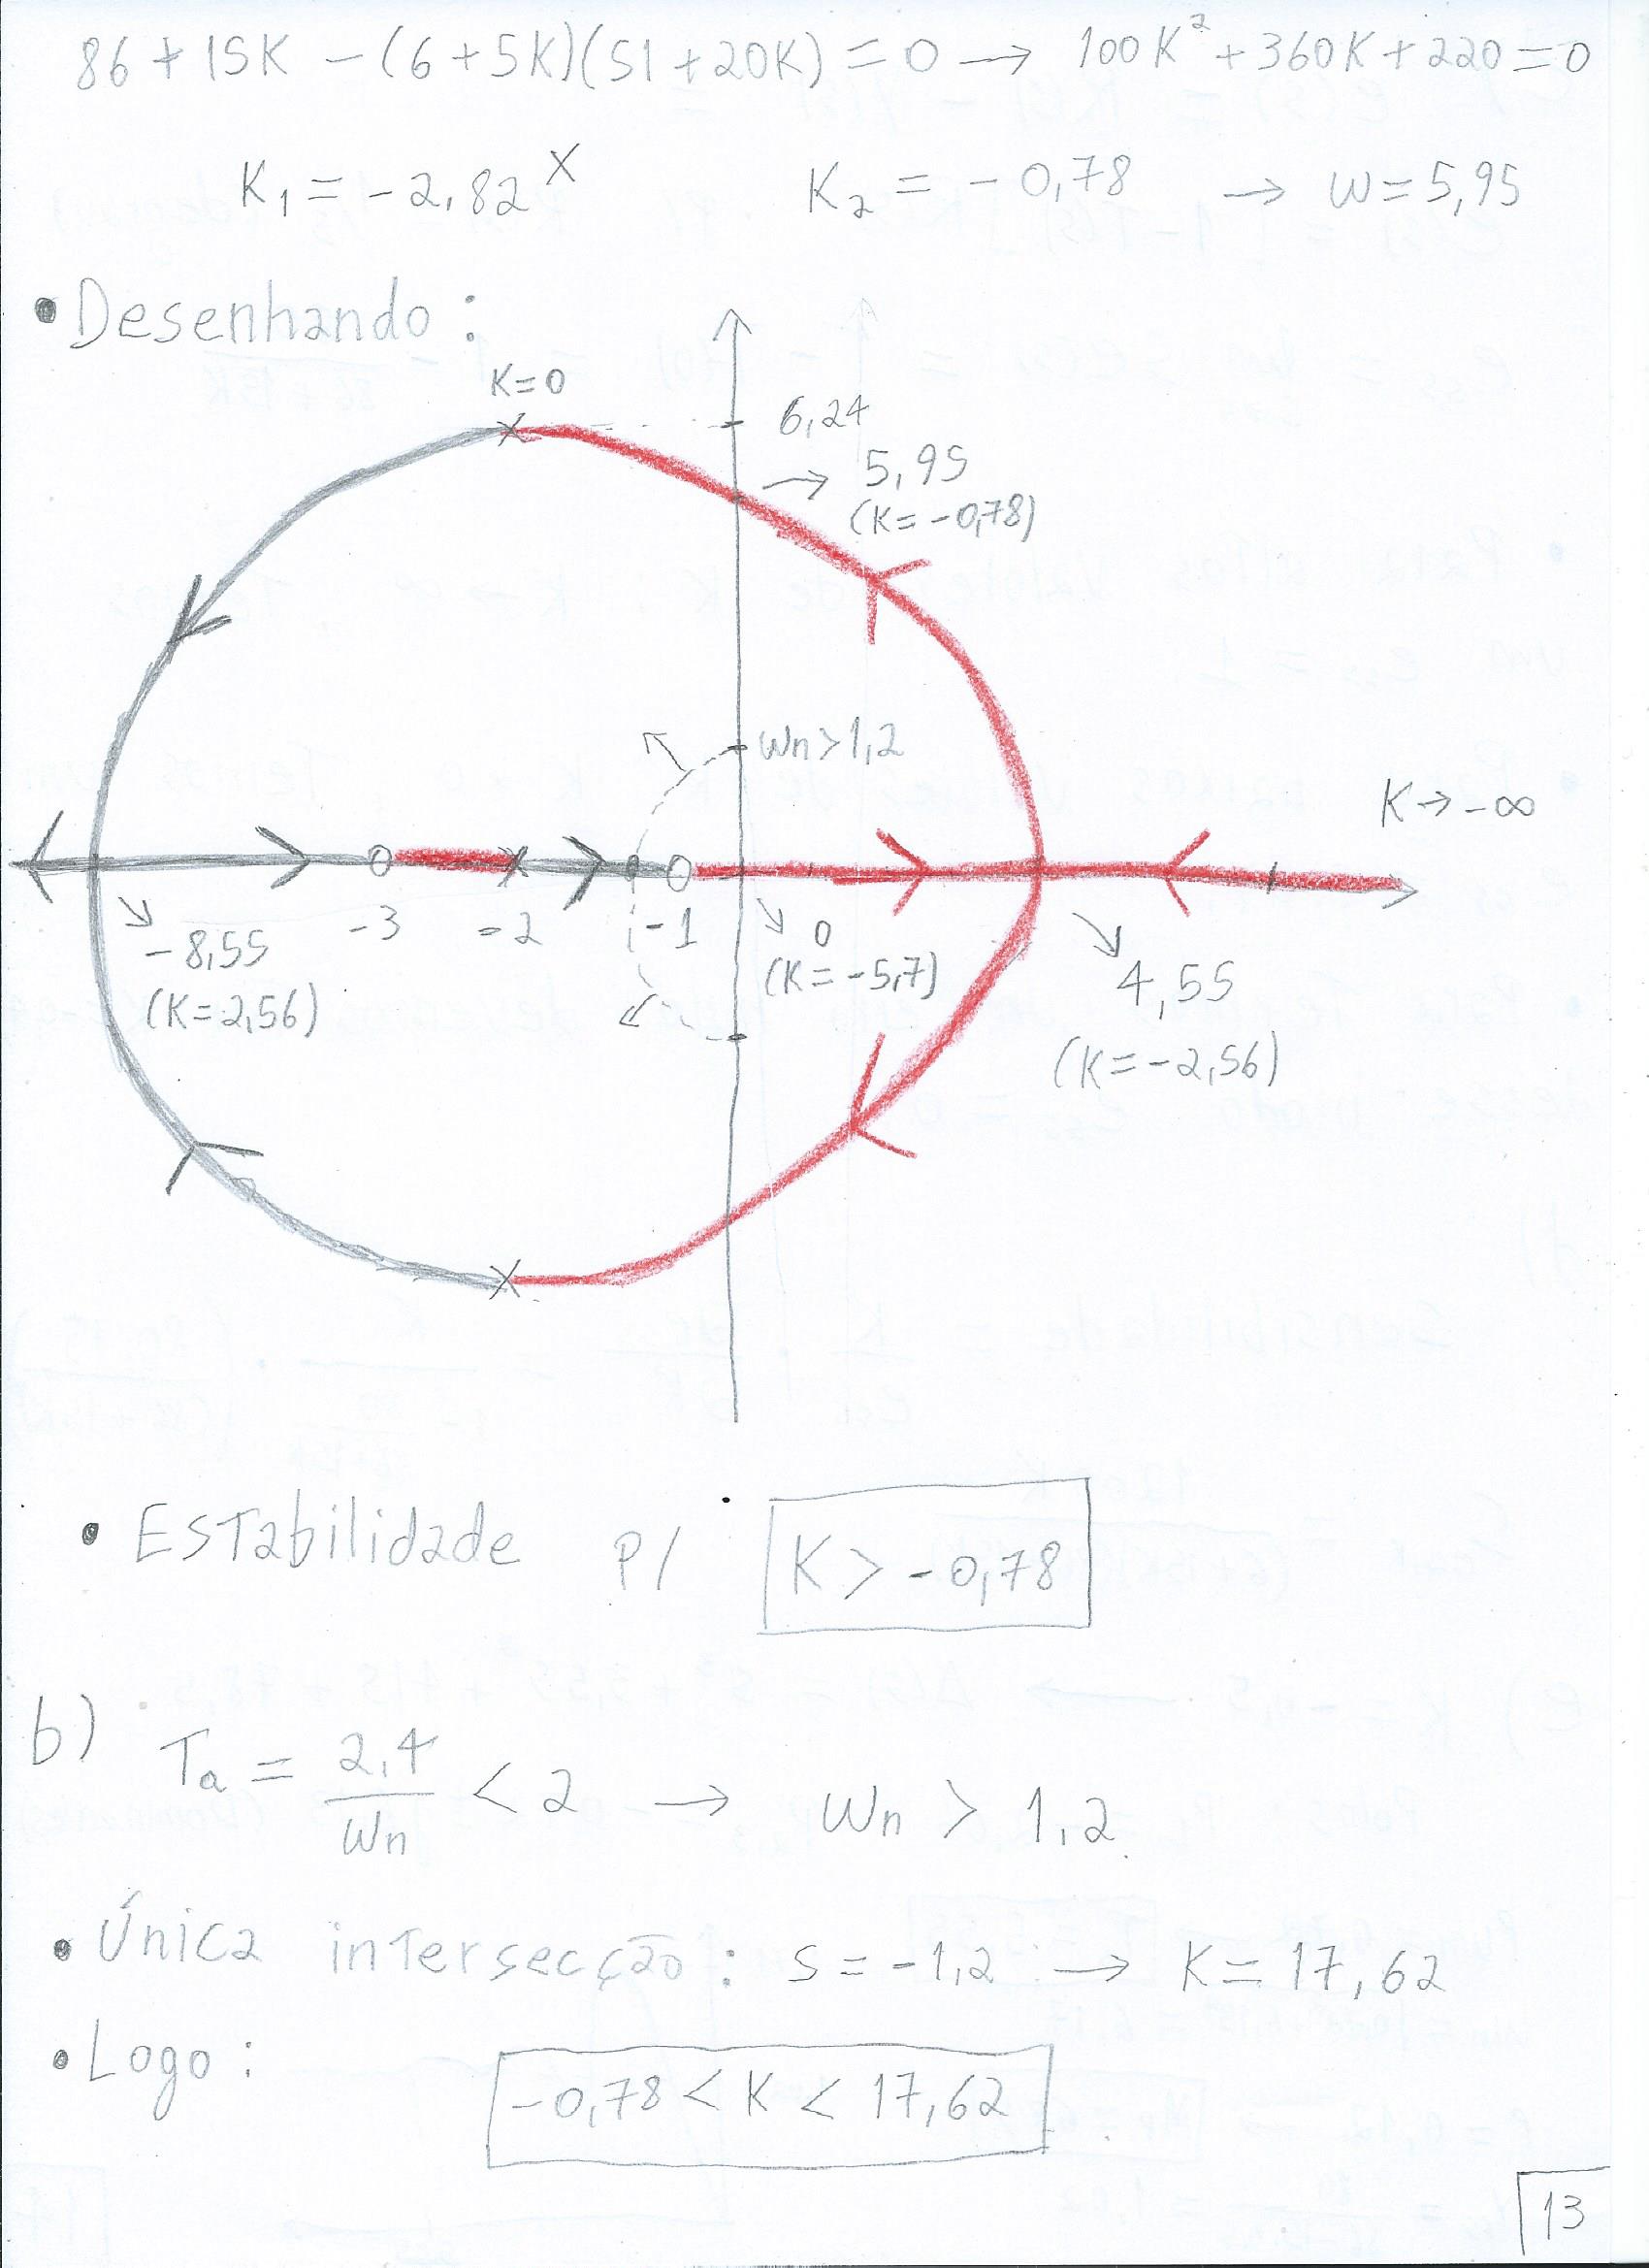 86 + 15K - (6 + 5K)(51 + 20K) = 0 → 100K² + 360K + 220 = 0
K₁ = -2,82 X K₂ = -0,78 → w = 5,95
• Desenhando :
K=0
6,24
→ 5,95
(K=-0,78)
Wn>1,2
K→-∞
-3 -2 -1 0
(K=-5,7)
-8,55
(K=2,56)
4,55
(K=-2,56)
• Estabilidade p/ K > -0,78
b) Ta = 2,4/Wn < 2 → Wn > 1,2
• Única intersecção : s = -1,2 → K = 17,62
• Logo :
-0,78 < K < 17,62
13